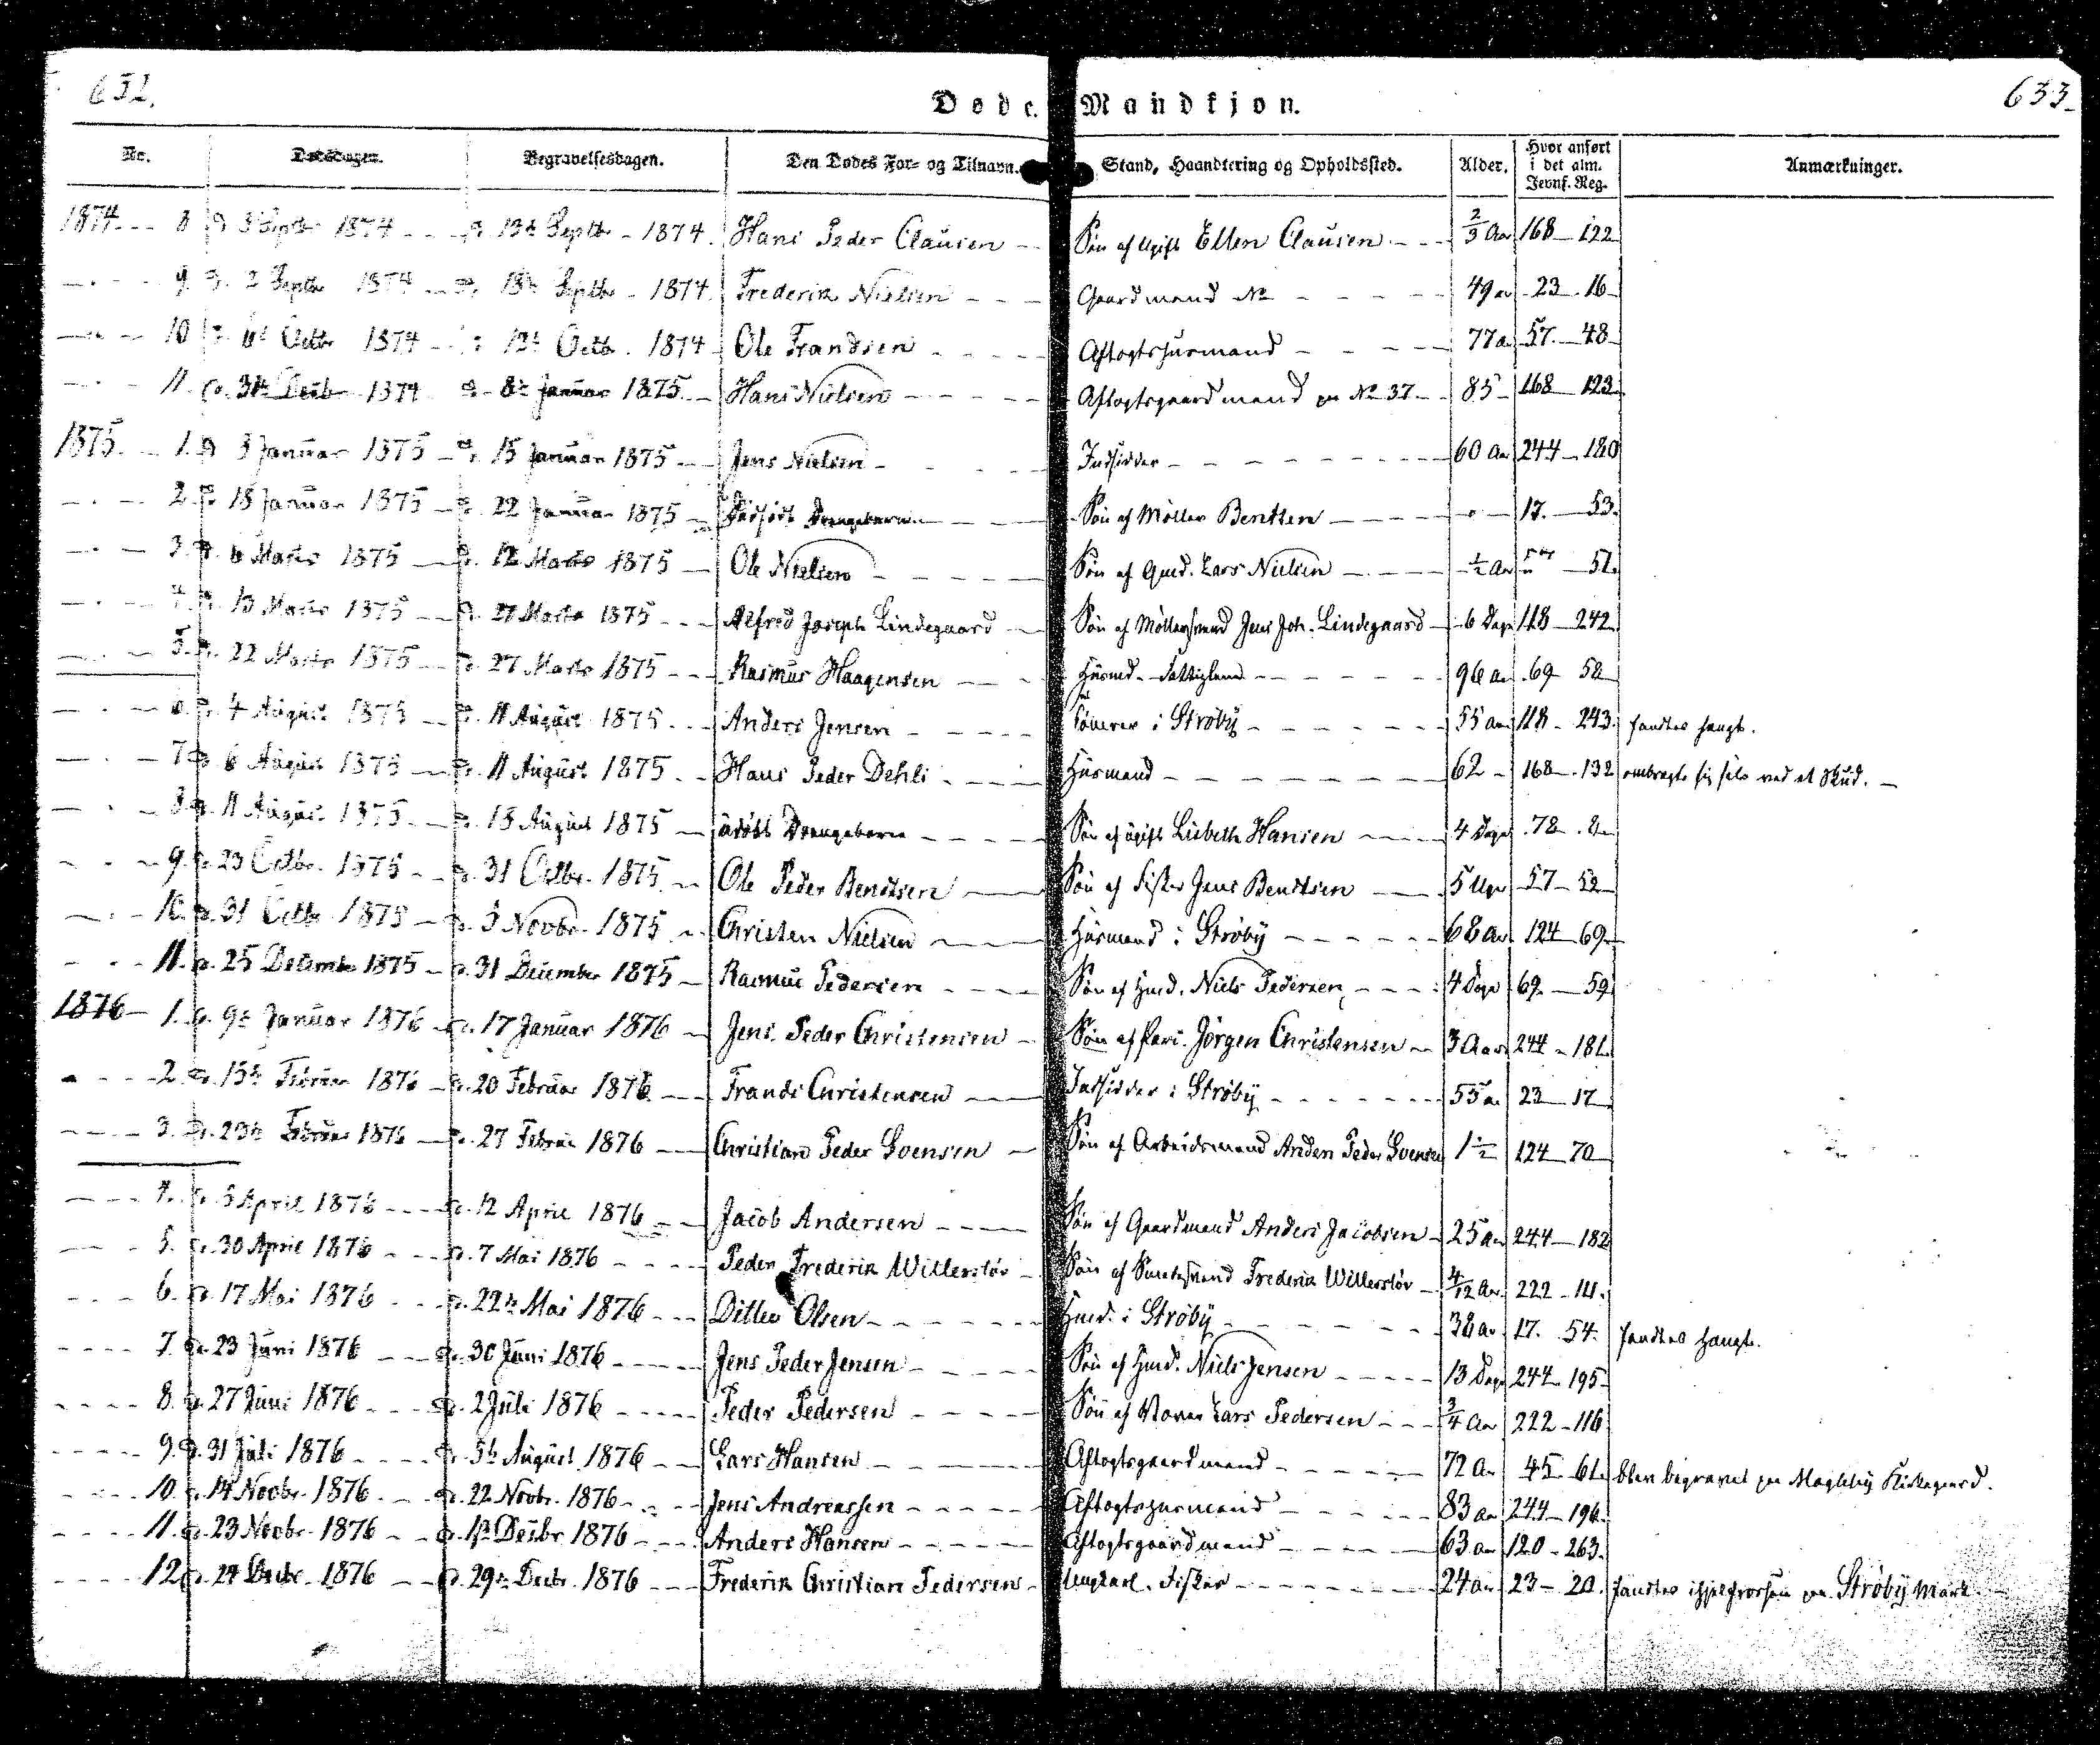 632.
633.
Døde. Mandkjøn.
Nr. Dødsdagen. Begravelsesdagen. Den Dødes For- og Tilnavn. Stand, Haandtering og Opholdssted. Alder. Hvor anført i det alm. Jevnf. Reg. Anmærkninger.
1874 8 d. 3 Septbr 1874 d. 13de Septbr 1874. Hans Peder Clausen Søn af Ugift Ellen Clausen 2/3 Aar 168 122
9 d. 2 Septbr 1874 d. 18de Septbr 1874. Frederik Nielsen Gaardmand No 49 23 16
10 d. 6te Octbr 1874 d. 12te Octb. 1874 Ole Frandsen Aftægtshusmand 77 57. 48
11. d. 31te Decbr 1874 d. 8de Januar 1875 Hans Nielsen Aftægtsgaardmand paa No 37 85 168 123
1875. 1. d. 8 Januar 1875 d. 15 Januar 1875 Jens Nielsen Indsidder 60 Aar 244 180
2. d. 18 Januar 1875 d. 22 Januar 1875 Dødfødt Drengebarn Søn af Møller Bendtsen 17. 53.
3. d. 6 Marts 1875 d. 12 Marts 1875 Ole Nielsen Søn af Gmd. Lars Nielsen 1/2 Aar 57 51.
4. d. 13 Marts 1875 d. 27 Marts 1875 Alfred Joseph Lindegaard Søn af Møllersvend Jens Joh. Lindegaard 6 Dage 118 242
5. d. 22 Marts 1875 d. 27 Marts 1875 Rasmus Haagensen Husmd. Fattiglem 96 Aar 69 58
6. d. 4 August 1875 d. 11 August 1875 Anders Jensen i Strøby 55 Aar 118 243. fandtes hængt.
7 d. 6 August 1875 d. 11 August 1875 Hans Peder Dehli Husmand 62 168 132 ombragte sig selv ved et Skud.
8 d. 11 August 1875 d. 15 August 1875 udøbt Drengebarn Søn af ugift Lisbeth Hansen 4 Dage 78 8
9. d. 23 Octbr. 1875 d. 31 Octbr. 1875 Ole Peder Bendtsen Søn af Fisker Jens Bendtsen 5 Uger 57 52
10. d. 31 Octbr 1875 d. 5 Novbr. 1875 Christen Nielsen Husmand i Strøby 68 Aar 124 69
11. d. 25 December 1875 d. 31 December 1875 Rasmus Pedersen Søn af Husmd. Niels Pedersen 4 Dage 69 59
1876 1. d. 9de Januar 1876 d. 17 Januar 1876 Jens Peder Christensen Søn af Jørgen Christensen 3 Aar 244 181.
2. d. 15de Februar 1876 d. 20 Februar 1876 Frands Christensen Indsidder i Strøby 55 Aar 23 17
3. d. 23de Februar 1876 d. 27 Februar 1876 Christian Peder Svensen Søn af Arbeidsmand Anders Peder Svensen 1 1/2 124 70
4. d. 5 April 1876 d. 12 April 1876 Jacob Andersen Søn af Gaardmand Anders Jacobsen 25 Aar 244 182
5. d. 30 April 1876 d. 7 Mai 1876 Peder Frederik Willersløv Søn af Smedesvend Frederik Willersløv 4/12 Aar 222 111.
6. d. 17 Mai 1876 d. 22de Mai 1876 Ditlev Olsen Husmd. i Strøby 38 Aar 17. 54. fandtes hængt.
7. d. 23 Juni 1876 d. 30 Juni 1876 Jens Peder Jensen Søn af Husmd. Niels Jensen 13 Dage 244 195
8. d. 27 Juni 1876 d. 2 Juli 1876 Peder Pedersen Søn af Lars Pedersen 3/4 Aar 222 116
9. d. 31 Juli 1876 d. 5te August 1876 Lars Hansen Aftægtsgaardmand 72 Aar 45 61. blev begravet paa Magleby Kirkegaard.
10. d. 14 Novbr. 1876 d. 22 Novbr. 1876 Jens Andreassen Aftægtshusmand 83 Aar 244 196.
11. d. 23 Novbr. 1876 d. 1ste Decbr 1876 Anders Hansen Aftægtsgaardmand 63 Aar 120 263.
12 d. 24 Decbr. 1876 d. 29de Decbr. 1876 Frederik Christian Pedersen Ungkarl. Fisker 24 Aar 23 20. fandtes ihjelfrossen paa Strøby Mark